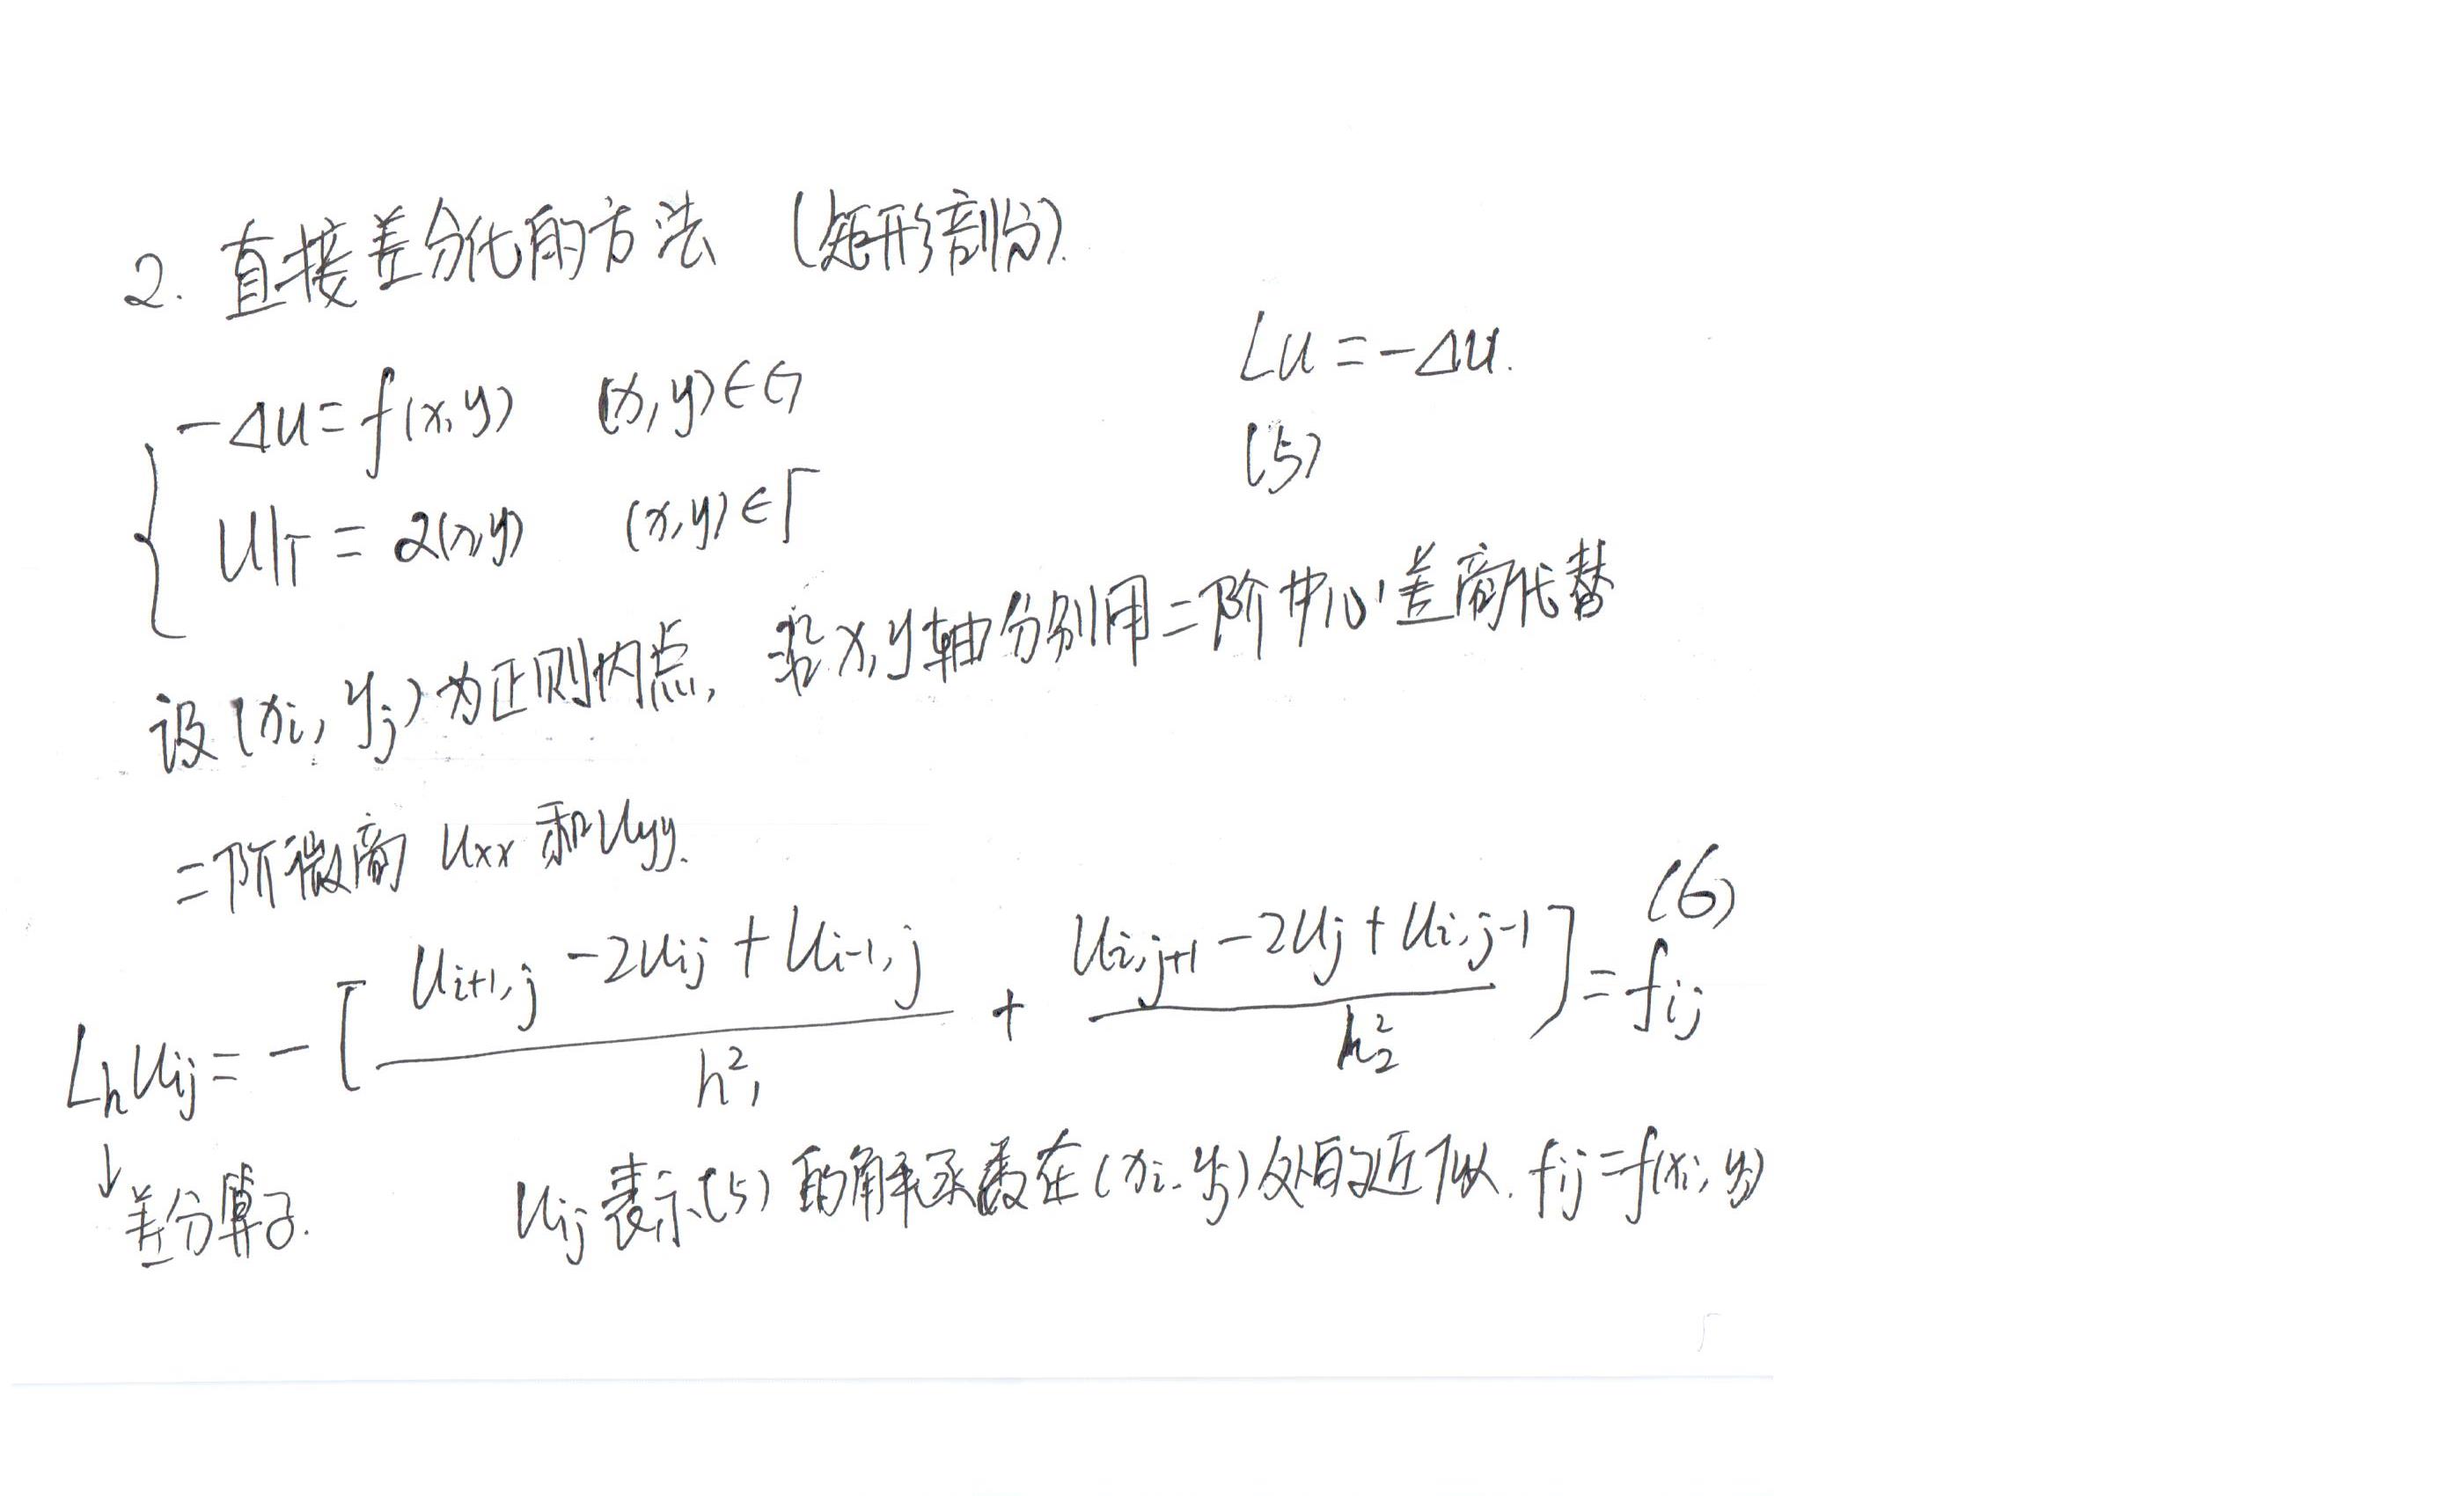 2. 直接差分化的方法 (矩形剖分).
Lu = -Δu.
-Δu = f(x,y) (x,y)∈G
(5)
u|Γ = α(x,y) (x,y)∈Γ
设(xi, yj)为正则内点, 沿x,y轴分别用二阶中心差商代替
二阶微商 uxx 和 uyy.
(6)
Lhuij = -[(ui+1,j - 2uij + ui-1,j)/h₁² + (ui,j+1 - 2uj + ui,j-1)/h₂²] = fij
↓差分算子. uij表示(5)的解函数在(xi, yj)处的近似. fij = f(xi, yj)